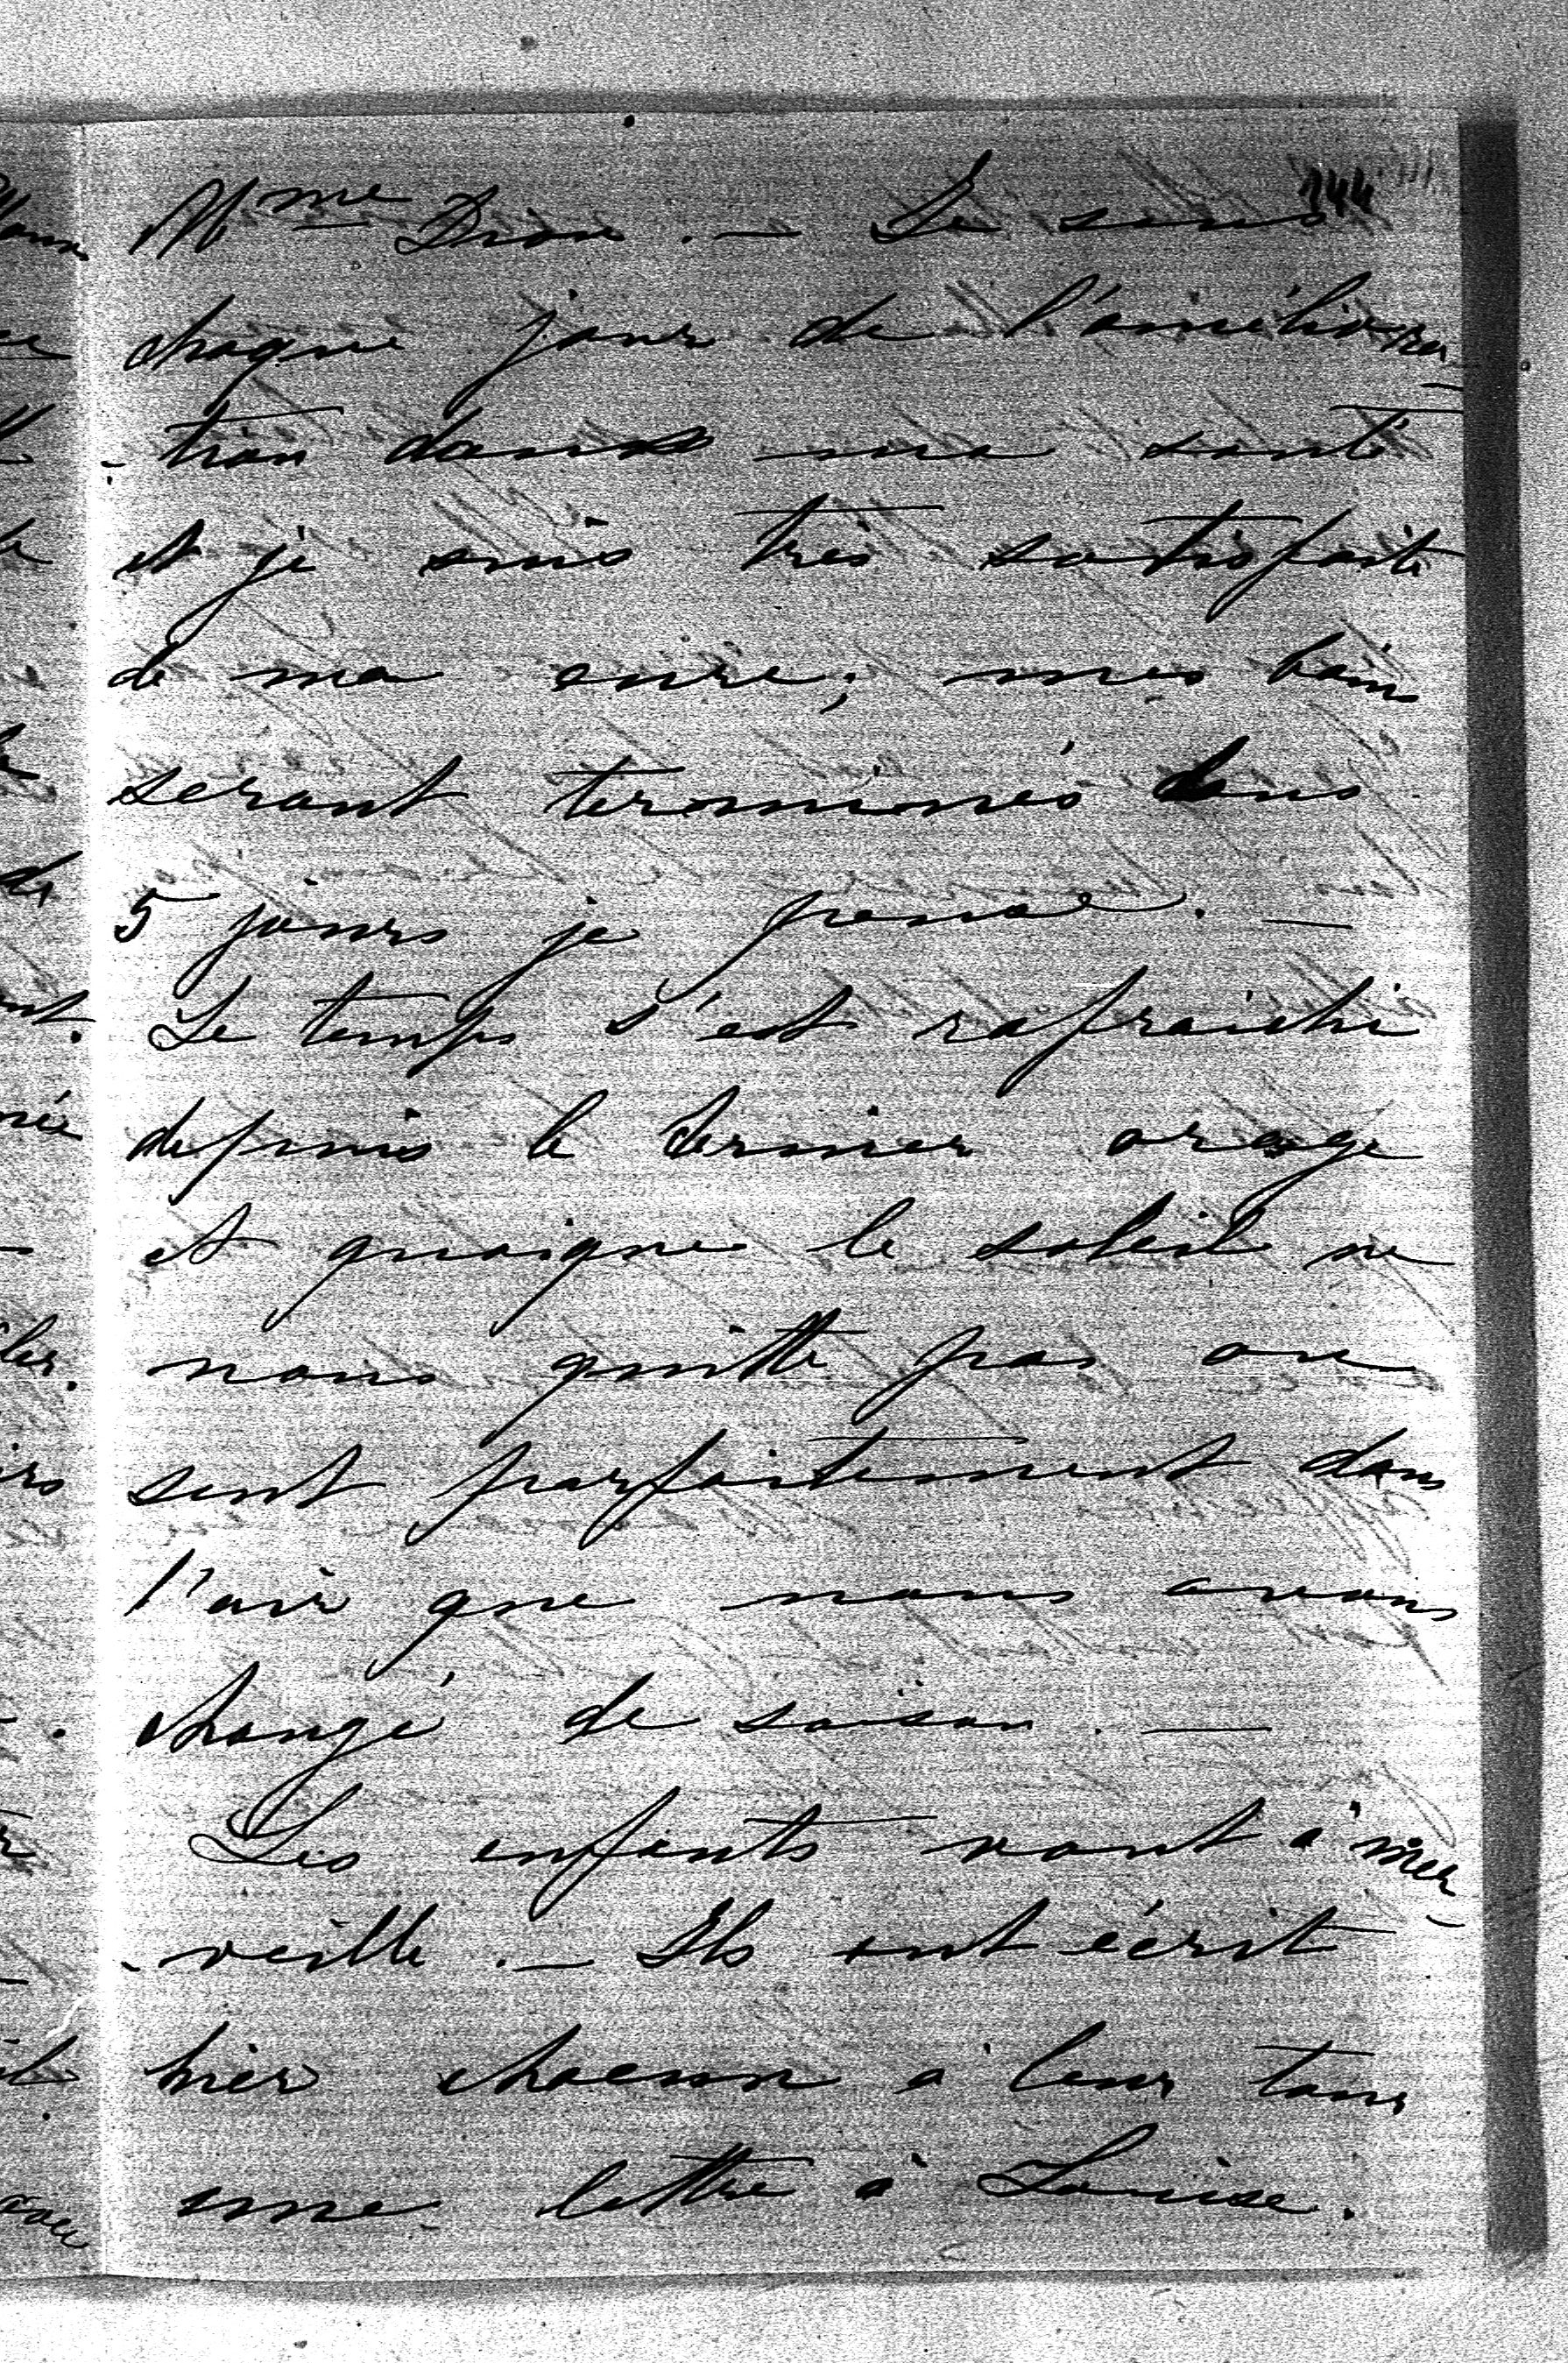 144
Mme Dion. — Je sens
chaque jour de l'améliora-
-tion dans ma santé
et je suis très satisfaite
de ma cure; mes bains
seront terminés dans
5 jours je pense. —
Le temps s'est rafraichi
depuis le dernier orage
et quoique le soleil ne
nous quitte pas on
sent parfaitement dans
l'air que nous avons
changé de saison. —
Les enfants vont à mer-
-veille. — Ils ont écrit
hier chacun à leur tour
une lettre à Louise.